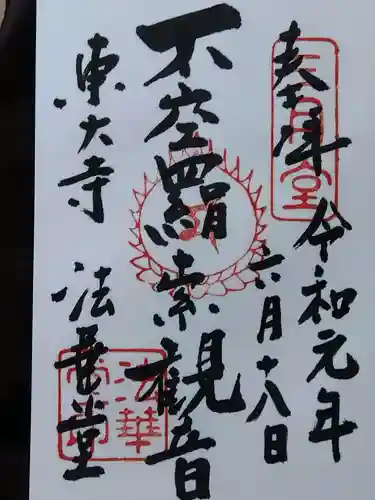 奉拝
令和元年
六月十八日
不空羂索観音
東大寺
法華堂
三月堂
法華堂